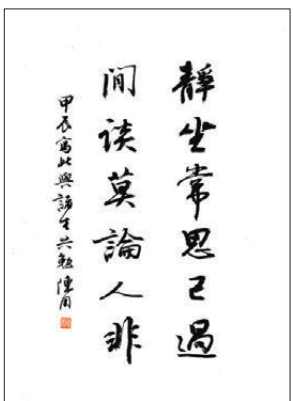 靜坐常思己過
閒談莫論人非
甲辰寫此與諸生共勉陳用